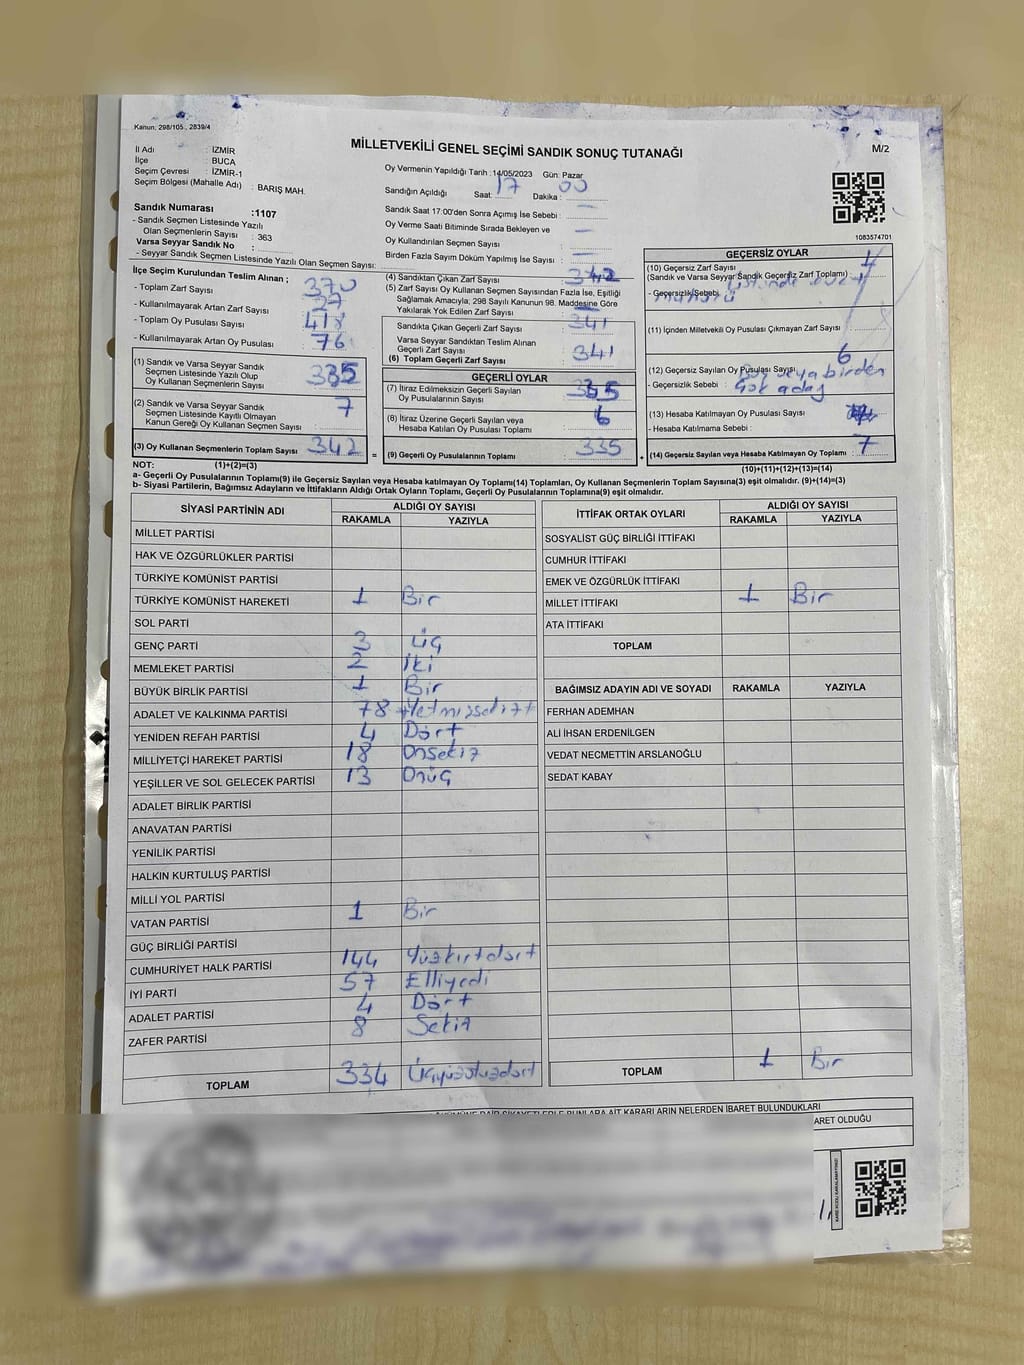 Kanun: 298/105., 2839/4
MİLLETVEKİLİ GENEL SEÇİMİ SANDIK SONUÇ TUTANAĞI
M/2
İl Adı : İZMİR
İlçe : BUCA
Seçim Çevresi : İZMİR-1
Seçim Bölgesi (Mahalle Adı) : BARIŞ MAH.
Sandık Numarası :1107
- Sandık Seçmen Listesinde Yazılı
Olan Seçmenlerin Sayısı : 363
Varsa Seyyar Sandık No :
- Seyyar Sandık Seçmen Listesinde Yazılı Olan Seçmen Sayısı:
Oy Vermenin Yapıldığı Tarih : 14/05/2023 Gün: Pazar
Sandığın Açıldığı Saat: 17 Dakika : 00
Sandık Saat 17:00'den Sonra Açımış İse Sebebi : —
Oy Verme Saati Bitiminde Sırada Bekleyen ve
Oy Kullandırılan Seçmen Sayısı —
Birden Fazla Sayım Döküm Yapılmış İse Sayısı : —
1083574701
İlçe Seçim Kurulundan Teslim Alınan ;
- Toplam Zarf Sayısı 370
- Kullanılmayarak Artan Zarf Sayısı
- Toplam Oy Pusulası Sayısı 418
- Kullanılmayarak Artan Oy Pusulası 76
(1) Sandık ve Varsa Seyyar Sandık
Seçmen Listesinde Yazılı Olup
Oy Kullanan Seçmenlerin Sayısı 335
(2) Sandık ve Varsa Seyyar Sandık
Seçmen Listesinde Kayıtlı Olmayan
Kanun Gereği Oy Kullanan Seçmen Sayısı 7
(3) Oy Kullanan Seçmenlerin Toplam Sayısı 342
(4) Sandıktan Çıkan Zarf Sayısı : 342
(5) Zarf Sayısı Oy Kullanan Seçmen Sayısından Fazla İse, Eşitliği
Sağlamak Amacıyla; 298 Sayılı Kanunun 98. Maddesine Göre
Yakılarak Yok Edilen Zarf Sayısı : —
Sandıkta Çıkan Geçerli Zarf Sayısı 341
Varsa Seyyar Sandıktan Teslim Alınan
Geçerli Zarf Sayısı
(6) Toplam Geçerli Zarf Sayısı 341
GEÇERLİ OYLAR
(7) İtiraz Edilmeksizin Geçerli Sayılan
Oy Pusulalarının Sayısı 335
(8) İtiraz Üzerine Geçerli Sayılan veya
Hesaba Katılan Oy Pusulası Toplamı
(9) Geçerli Oy Pusulalarının Toplamı 335
GEÇERSİZ OYLAR
(10) Geçersiz Zarf Sayısı
(Sandık ve Varsa Seyyar Sandık Geçersiz Zarf Toplamı)
- Geçersizlik Sebebi
(11) İçinden Milletvekili Oy Pusulası Çıkmayan Zarf Sayısı :
(12) Geçersiz Sayılan Oy Pusulası Sayısı 6
- Geçersizlik Sebebi :
(13) Hesaba Katılmayan Oy Pusulası Sayısı
- Hesaba Katılmama Sebebi :
(14) Geçersiz Sayılan veya Hesaba Katılmayan Oy Toplamı : 7
NOT: (1)+(2)=(3)
(10)+(11)+(12)+(13)=(14)
a- Geçerli Oy Pusulalarının Toplamı(9) ile Geçersiz Sayılan veya Hesaba katılmayan Oy Toplamı(14) Toplamları, Oy Kullanan Seçmenlerin Toplam Sayısına(3) eşit olmalıdır. (9)+(14)=(3)
b- Siyasi Partilerin, Bağımsız Adayların ve İttifakların Aldığı Ortak Oyların Toplamı, Geçerli Oy Pusulalarının Toplamına(9) eşit olmalıdır.
SİYASİ PARTİNİN ADI ALDIĞI OY SAYISI
RAKAMLA YAZIYLA
MİLLET PARTİSİ
HAK VE ÖZGÜRLÜKLER PARTİSİ
TÜRKİYE KOMÜNİST PARTİSİ
TÜRKİYE KOMÜNİST HAREKETİ 1 Bir
SOL PARTİ
GENÇ PARTİ 3 Üç
MEMLEKET PARTİSİ 2 İki
BÜYÜK BİRLİK PARTİSİ 1 Bir
ADALET VE KALKINMA PARTİSİ 78
YENİDEN REFAH PARTİSİ 4 Dört
MİLLİYETÇİ HAREKET PARTİSİ 18 Onsekiz
YEŞİLLER VE SOL GELECEK PARTİSİ 13 Onüç
ADALET BİRLİK PARTİSİ
ANAVATAN PARTİSİ
YENİLİK PARTİSİ
HALKIN KURTULUŞ PARTİSİ
MİLLİ YOL PARTİSİ
VATAN PARTİSİ 1 Bir
GÜÇ BİRLİĞİ PARTİSİ
CUMHURİYET HALK PARTİSİ 144 Yüzkırkdört
İYİ PARTİ 57 Elliyedi
ADALET PARTİSİ 4 Dört
ZAFER PARTİSİ 8 Sekiz
TOPLAM 334 Üçyüzotuzdört
İTTİFAK ORTAK OYLARI ALDIĞI OY SAYISI
RAKAMLA YAZIYLA
SOSYALİST GÜÇ BİRLİĞİ İTTİFAKI
CUMHUR İTTİFAKI
EMEK VE ÖZGÜRLÜK İTTİFAKI
MİLLET İTTİFAKI 1 Bir
ATA İTTİFAKI
TOPLAM
BAĞIMSIZ ADAYIN ADI VE SOYADI RAKAMLA YAZIYLA
FERHAN ADEMHAN
ALİ İHSAN ERDENİLGEN
VEDAT NECMETTİN ARSLANOĞLU
SEDAT KABAY
TOPLAM 1 Bir
NELERDEN İBARET BULUNDUKLARI
ARET OLDUĞU